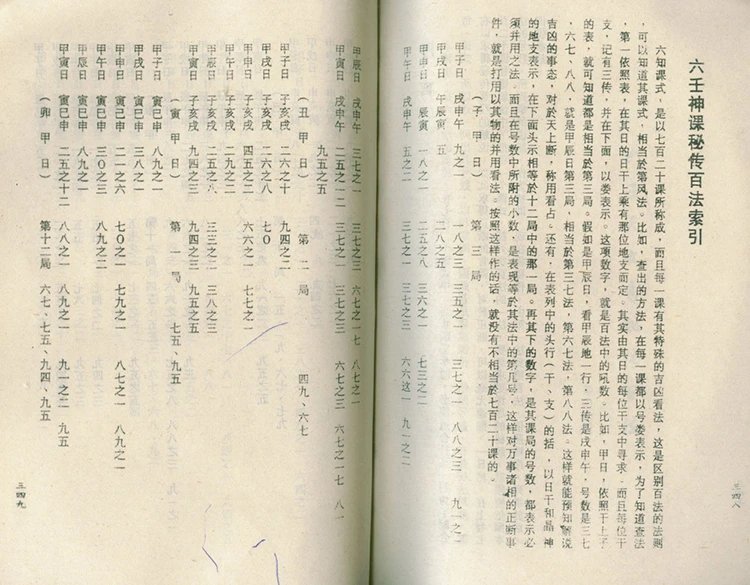 六壬神课秘传百法索引
六知课式、是以七百二十课所称成，而且每一课有其特殊的吉凶看法，这是区别百法的法则
，可以知道其课式，相当於第风法。比如，查出的方法，在每一课都以号娄表示，为了知道查法
，第一依照表，在其日的日干上乘有那位地支而定。其实由其日的每位干支中寻求。而且每位干
支，记有三传，并在下面，以娄表示。这项数字，就是百法中的吼数。比如，甲日，依照于上子
的表，就可知道都是相当於第三局。假如是甲辰日，看甲辰地一行，三传是戌申午，号数是三七
、六七、八八，就是甲辰日第三局，相当於第三七法，第六七法，第八八法。这样就能预知解说
吉凶的事态，对於天上断，称用看占。还有，在表列中的头行（干、支）的括，以日干和晶神
的地支表示，在下面头示相等於十二局中的那一局。再其下的数字，是其课局的号数，都表示必
须并用之法。而且在号数中所附的小数，是表现等於其法中的第几号，这样对万事诸相的正断事
件，就是打用以其物的并用看法。按照这样作的话，就没有不相当於七百二十课的。
（子 甲 日） 第 三 局
甲子日 戌申午 九之一 一八之三 三五之一 三七之一 八八之三 九一之二
甲戌日 午辰寅
甲申日 午辰寅 一八之一 二五之八 三六之一 七三之二
甲午日 辰寅 五之二 三七之一 三七之三 六六这一 九一之一
甲辰日 戌申午 三七之一 三七之三 六七之一七 八七之一
甲寅日 戌申午 二五之一二 三七之一 三七之三 六七之三 六七之一七 八八
九五之五
（丑 甲 日） 第 二 局 四九、六七
甲子日 子亥戌 二六之十 九四之二
甲戌日 子亥戌 二六之八 七〇
甲申日 子亥戌 四五之二 六六之二 七七之一
甲午日 子亥戌 二九之二
甲辰日 子亥戌 二五之八 三三之二 三八之三
甲寅日 子亥戌 九四之三 九四之三 三五之三
（寅 甲 日） 第 一 局 七五、九五
甲子日 寅巳申 八九之二
甲戌日 寅巳申 三八之二
甲申日 寅巳申 二一之六 七〇之一 七九之一 八七之一 八九之一
甲午日 寅巳申 八九之二
甲辰日 寅巳申 三八之一
甲寅日 寅巳申 二五之十二 八八之一 八九之一 九一之二 九五
（卯 甲 日） 第十二局 六七、七五、九四、九五
三四八
三四九